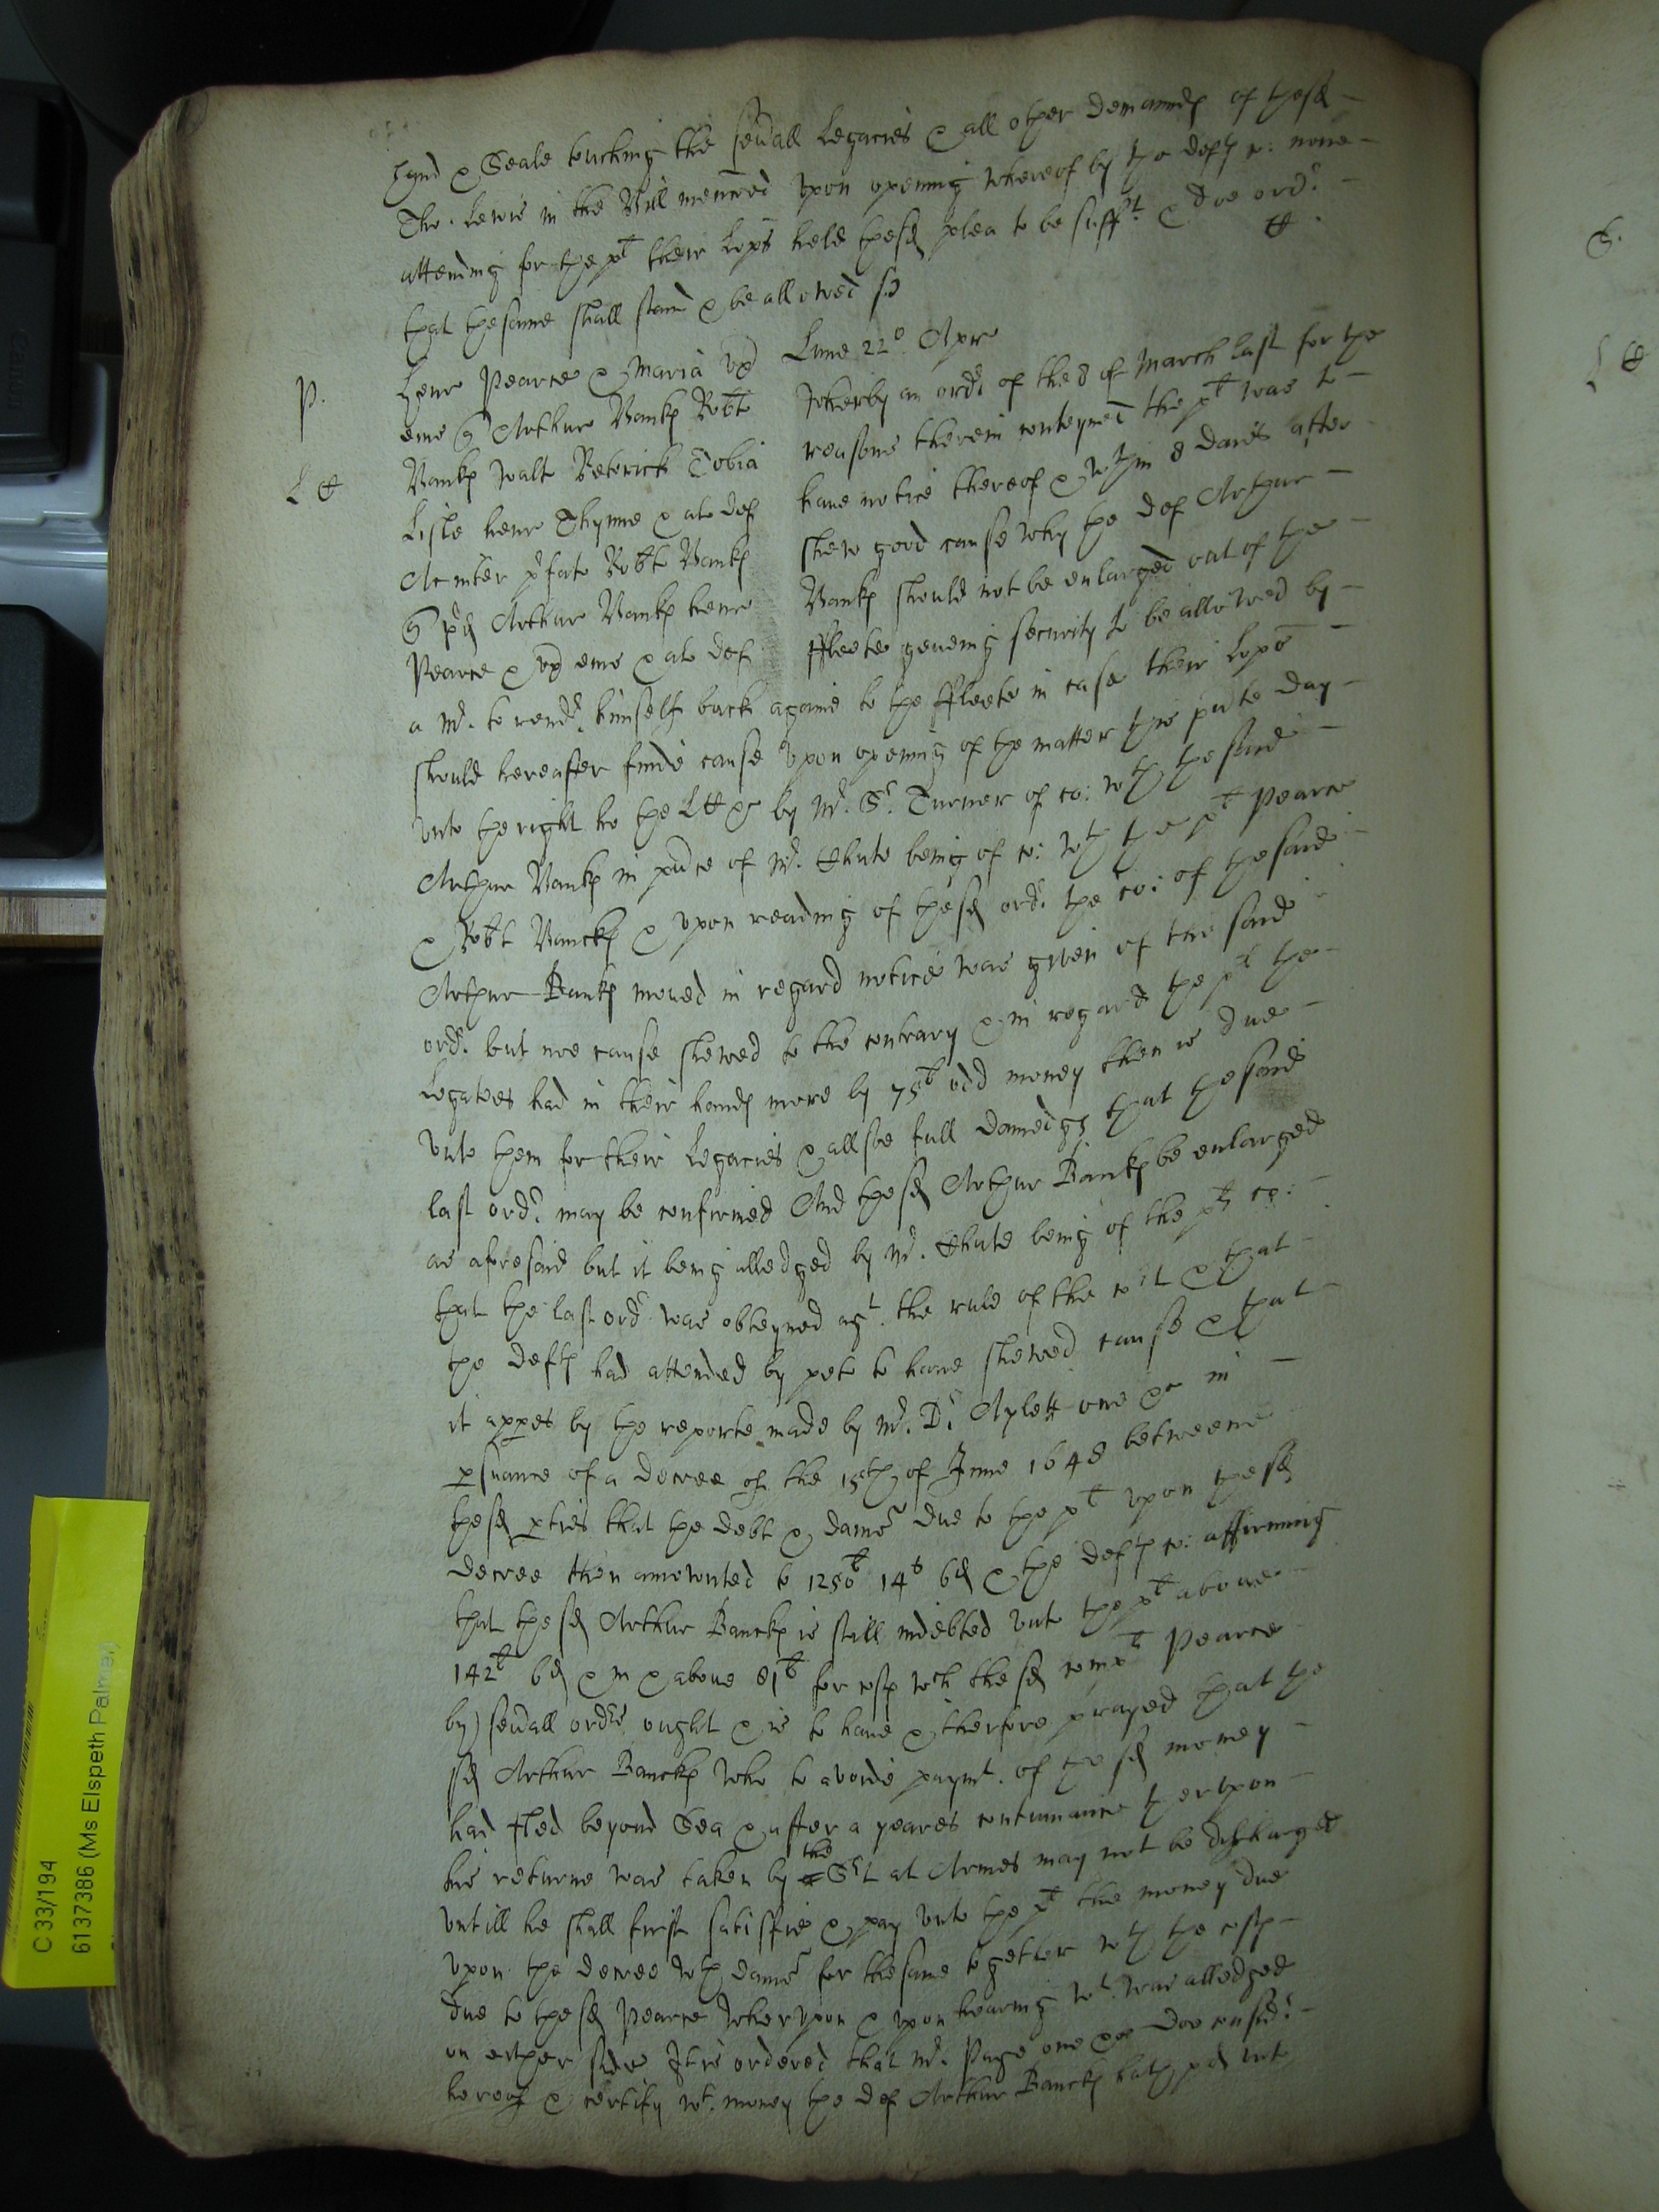 hand & Seale touching the seu͞all Legacies & all other demaunds of these
Tho. Lewis in the Bill menc̄oed vpon opening whereof by the deft͞s co: none
attending for the pt their Lops held the sd plea to be sufft & doe ordr
that the same shall stand & be allowed so
Lune 22o Apr
P.
Henr Pearce & Maria vx
eius q͞ Arthur Banks Robte
Banks Walt Beterick Tobia
L
Lisle henr Thynne & al def
Ac inter p͞fat Robt Banks
q͞ p͞d Arthur Banks henr
Pearce & vx eius & al def
Wherby an ordr of the 8 of March last for the
reasons therein conteyned the pt was to
haue notice thereof & wthin 8 daies after
shew good cause why the def Arthur
Banks should not be enlarged out of the
ffleete geueing security to be allowed by
a Mr. to rendr himself back againe to the ffleete in case their Lops
should hereafter finde cause vpon opening of the matter this p͞nte day
vnto the right ho the L &c by Mr. Sr. Turner of co: wth the said
Arthur Banks in p͞nce of Mr. Chute being of co: wth the pt Pearce
& Robt Bancks & vpon reading of the sd ordr the co: of the said
Arthur Banks moued in regard notice was given of the said
ordr but noe cause shewed to the contrary & in regard the pt the
Legatees had in their hands more by 75l odd money then is due
vnto them for their Legacies & allsoe full damedgs that the said
last ordr may be confirmed And the sd Arthur Banks be enlarged
as aforesaid but it being alledged by Mr. Chute being of the pts co:
that the last ordr was obteyned agt. the rule of the co͞rt & that
the defts had attended by pet to haue shewed cause & that
it appes by the reporte made by Mr. Dr Aylett one &c in
p͞suance of a decree of the 15th of June 1648 betweene
the sd p͞ties that the debt & dam͞s due to the pt vpon the sd
decree then amounted to 1250l 14s 6d & the defts co: affirming
that the sd Arthur Bancks is still indebted vnto the pt aboue
142l 6d & in & aboue 81l for costs wch the sd pt Pearce
by seu͞all ordrs ought & is to haue & therfore prayed that the
sd Arthur Bancks who to avoide paymt. of the sd money
had fled beyond Sea & after a yeares continuance therevpon
his returne was taken by the Srt at Armes may not be discharged
vntill he shall first satisfie & pay vnto the pt the money due
vpon the decree wth dam͞s for the same together wth the costs
due to the sd Pearce Wherevpon & vpon hearing wt. was alledged
on either side It is ordered that Mr. Page one &c doe considr
hereof & certify wt. money the def Arthur Bancks hath pd vnto
C 33/194
6137386 (Ms Elspeth Palmer)